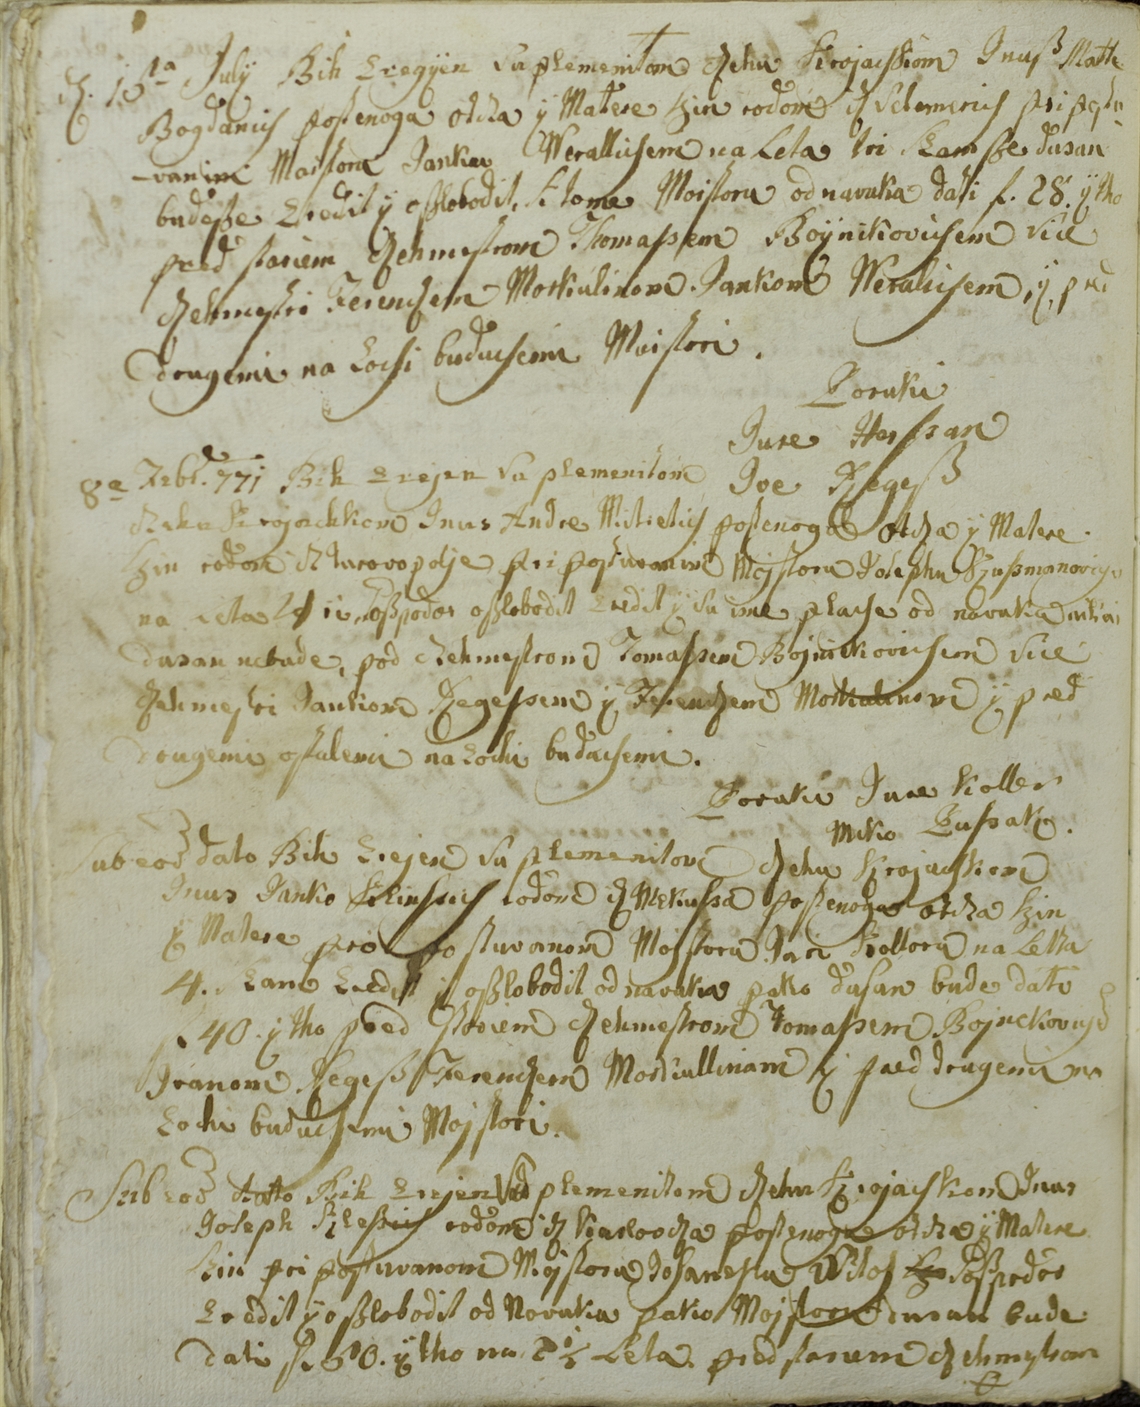 D. 16ta July Bih Zregyen Vu plemenitom Czehu Krojachkom Inuß Matte
Bogdanich postenoga otcza y Matere szin rodom iz Velemerich pri postu
vanim Maistoru Janku Werallichem na Leta tri Kam sze dusan
budesse Zredit y oszlobodit, k tomu Moistoru od navuka dati f. 28. y tho
pred starim Czehmestrom Thomassem Boynikovichem Vice
Czehmestri Ferenczem Moskulinom. Jankom Weralichem, y pred
drugemi na Lochi buduchemi Maistori.
Poruki
Jure Herssan
8a Febr. 771 Bih Zrejen Vu plemenitom Joe Kegeß
Czehu Krojachkom Inus Andre Miletich postenoga Otcza y Matere
szin rodom iz Turovopolje pri postuvanim Mojstoru Josephu Szußmanovichu
na Leta 4 je Goszpodor oszlobodit Zredit y vu ime plache od navuka nikai
dusan nebude, pod Czehmestrom Tomassem Bojnickovichem Vice
Czehmestri Jankom Kegessem y Ferenczem Moskulinom y pred
drugemi ostalemi na Lochi buduchemi.
Poruki Jure Koller
Miko Lussak.
Sub eod dato Bih Zrejen Vu plemenitom Czehu Krojachkom
Inus Janko rodom iz Mekussa postenoga otcza szin
y Matere pri postuvanom Mojstoru Juri Kolloru na Letta
4. Kam Zredit y oszlobodit od navuka pako dusan bude dati
f. 40. y tho pred starem Czehmestrom Tomassem Bojnickovich
Ivanom Kegeß Ferenczem Moskullinam y pred drugemi na
Lochi buduchemi Mojstori.
Sub eod dato Bih Zrejen Vu plemenitom Czehu Krojachkom Inus
Joseph rodom iz Karlovcza postenoga otcza y Matere
szin pri postuvanom Mojstoru Goszpodor
Zredit y oszlobodit od Navuka pako Mojstoru dusan bude
dati f. 50. y tho na 2 1/2 Leta. pred starem Czehmestrom